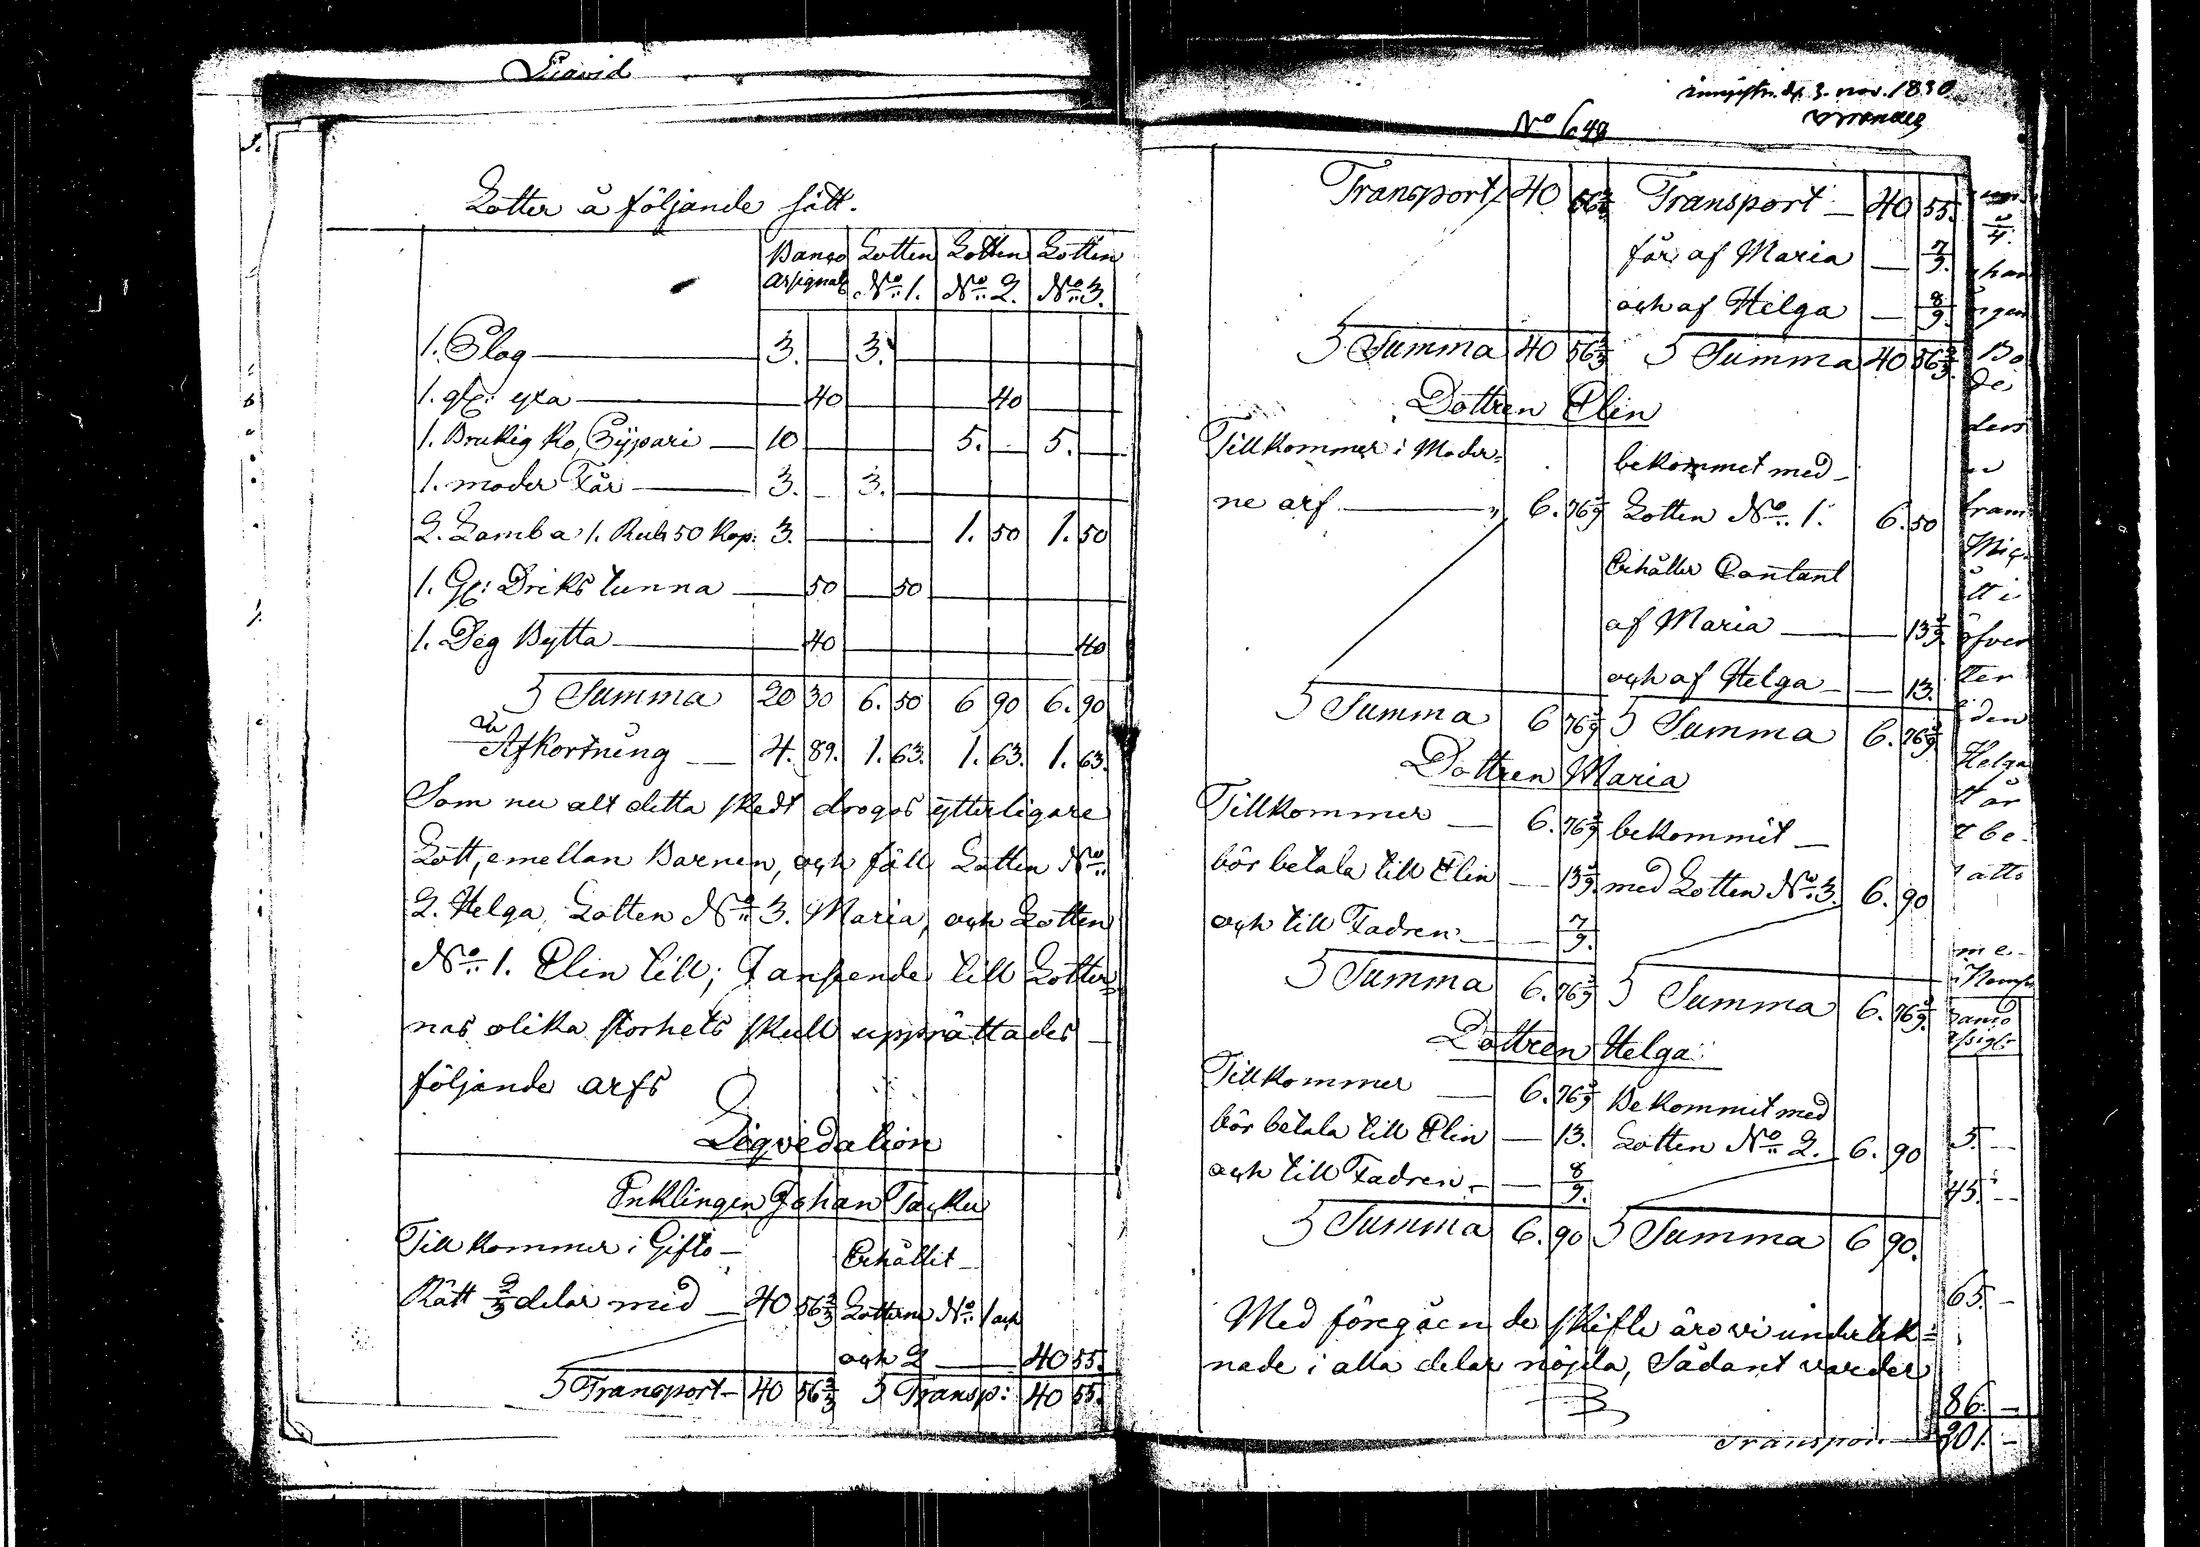 Lotter å följande sätt.
Banco Lotten Lotten Lotten
Assignats No 1. No 2. No 3.
1. Slog — 3. 3.
1. gl: yxa — 40 40
1. Brukig Ko, — 10 5. 5.
1. moder Får — 3. 3.
2. Lamb a 1. Rub 50 Kop: 3. 1. 50 1. 50
1. Gl: Driks tunna — 50 50
1. Deg Bytta — 40 40
Summa 20 30 6. 50 6 90 6. 90
Afkortning — 4. 89. 1. 63. 1. 63. 1. 63.
Som nu alt detta skedt drogos ytterligare
Lott, emellan Barnen, och föll Lotten No
2. Helga, Lotten No 3. Maria, och Lotten
No 1. Elin till; Lotter=
nas olika storhets skull upprättades
följande arfs
Liqvidation
Enklingen Johan
Tillkommer i Gifto — Erhållit —
Rätt 2/3 delar med — 40 56 2/3 Lotterne No 1 och
och 2 — 40 55.
Transport — 40 56 2/3 Transp: 40 55.
No 648
3. nov. 1830
Transport 40 56 2/3 Transport — 40 55.
får af Maria — 7/9.
och af Helga — 8/9.
Summa 40 56 2/3 Summa 40 56 2/3
Dottren Elin
Tillkommer i Moder= bekommet med —
ne arf — " 6. 76 1/9 Lotten No 1. 6. 50
Erhåller Contant
af Maria — 13 1/9
och af Helga — 13.
Summa 6 76 1/9 Summa 6. 76 1/9
Dottren Maria
Tillkommer — 6. 76 1/9 bekommit —
bör betala till Elin — 13 1/9 med Lotten No 3. 6. 90
och till Fadren — 7/9.
Summa 6. 76 1/9 Summa 6. 76 1/9.
Dottren Helga
Tillkommer — 6. 76 1/9 Bekommit med
bör betala till Elin — 13. Lotten No 2. 6. 90
och till Fadren — 8/9.
Summa 6. 90 Summa 6 90.
Med föregåen de skifte äro vi undertek=
nade i alla delar nöjda, Sådant varder
5. —
45. —
65. —
86. —
201. —